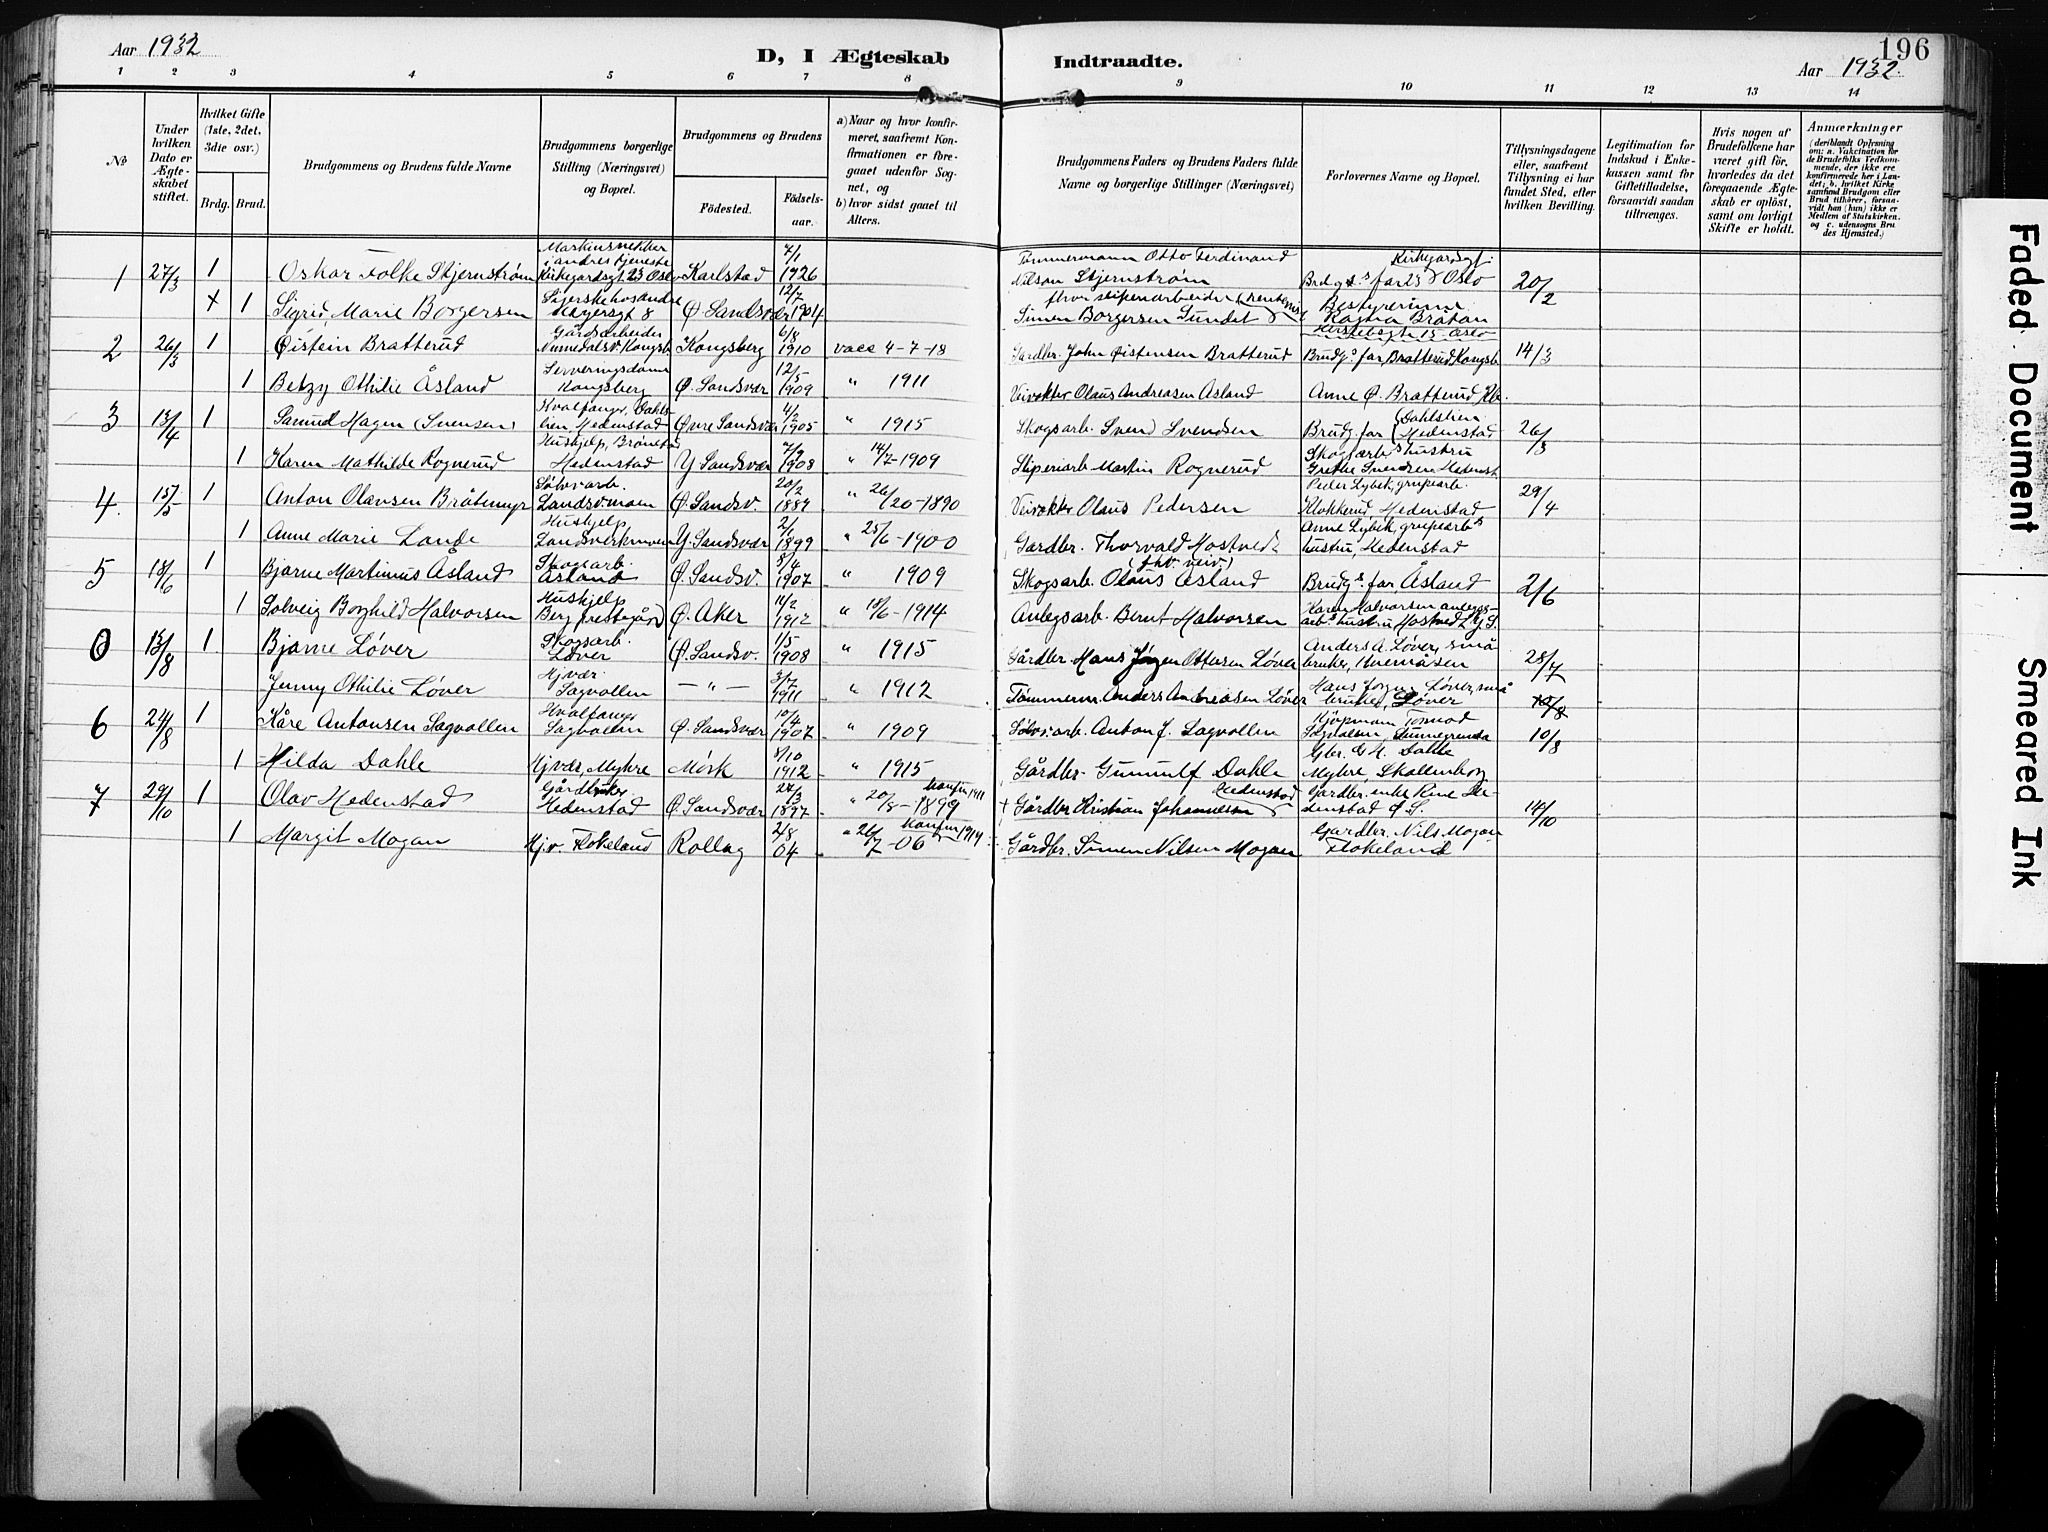 Aar 1932
D, I Ægteskab Indtraadte.
196
Aar 1932.
1 2 3 4 5 6 7 8 9 10 11 12 13 14
No
Under hvilken Dato er Ægteskabet stiftet.
Hvilket Gifte (1ste, 2det, 3die osv.)
Brdg. Brud.
Brudgommens og Brudens fulde Navne
Brudgommens borgerlige Stilling (Næringsvei) og Bopæl.
Brudgommens og Brudens
Fødested.
Fødselsaar.
a) Naar og hvor konfirmeret, saafremt Konfirmationen er foregaaet udenfor Sognet, og
b) hvor sidst gaaet til Alters.
Brudgommens Faders og Brudens Faders fulde Navne og borgerlige Stillinger (Næringsvei)
Forlovernes Navne og Bopæl.
Tillysningsdagene eller, saafremt Tillysning ei har fundet Sted, efter hvilken Bevilling.
Legitimation for Indskud i Enkekassen samt for Giftetilladelse, forsaavidt saadan tiltrænges.
Hvis nogen af Brudefolkene har været gift før, hvorledes da det foregaaende Ægteskab er opløst, samt om lovligt Skifte er holdt.
Anmærkninger
(deriblandt Oplysning om: a. Vakcination for de Brudefolks Vedkommende, der ikke ere konfirmerede her i Landet; b. hvilket Kirkesamfund Brudgom eller Brud tilhører, forsaavidt han (hun) ikke er Medlem af Statskirken, og c. udensogns Brudes Hjemsted.)
1 27/3 1 Oskar Folke Stjernstrøm i andres tjeneste Kirkegardsgt 23 Oslo Karlstad 7/1 1926 Tømmermann Otto Ferdinand Nilson Stjernstrøm Brdg.s far Kirkegardsgt. 23 Oslo 20/2
+ 1 Sigrid Marie Borgersen Ø. Sandsvær 12/7 1904 Simen Borgersen Sundet Bestyrerinne Ragna Bråtan 15 Oslo
2 26/3 1 Øistein Bratterud Gårdsarbeider Numedalsv. Kongsb. Kongsberg 6/8 1910 vacc 4-7-18 Gardbr. John Øistensen Bratterud Brudg.s far, Bratterud Kongsb. 14/3
1 Betzy Othilie Åsland Serveringsdame Kongsberg Ø. Sandsvær 12/5 1909 " 1911 Veivokter Olaus Andreasen Åsland Anne Ø. Bratterud, Kbr.
3 13/4 1 Samund Hagen (Svensen) Hvalfanger, Dahlstien, Hedenstad Øvre Sandsvær 4/2 1905 " 1915 Skogsarb. Svend Svendsen Brudg. far (Dahlstien Hedenstad 26/3
1 Karen Mathilde Rognerud Hushjelp, Hedenstad Y Sandsvær 7/9 1908 " 14/7-1909 Sliperiarb Martin Rognerud Skogsarb.s hustru Grethe Svendsen Hedenst.
4. 15/5 1 Anton Olausen Bråtemyr Sølvv.arb. Landsv.moen Ø. Sandsv. 20/2 1889 " 26/20-1890 Veivokter Olaus Pedersen Peder Lybek, grupearb. Klokkerud Hedenstad 29/4
1 Anne Marie Lande Hushjelp, Landsverkmoen Y. Sandsvær 1899 " 25/6-1900 Gardbr. Thorvald Hostvedt Anne Lybek, grupearb.s hustru, Hedenstad
5 18/6 1 Bjarne Martinus Åsland Skogsarb. Åsland Ø. Sandsv. 8/4 1907 " 1909 Skogsarb. (fhv. veiv.) Olaus Åsland Brudg.s far, Åsland 2/6
1 Solveig Borghild Halvorsen Hushjelp Berg prestegård Ø. Aker 11/2 1912 " 18/6-1914 Anlegsarb. Bernt Halvorsen Karen Halvorsen anleggsarb.s hustru Hostvedt Y.S.
0 13/8 1 Bjarne Løver Skogsarb. Løver Ø. Sandsv. 1/5 1908 " 1915 Gårdbr. Hans Jørgen Ottesen Løver Anders A. Løver, småbruker, 28/7
Jenny Othilie Løver Hj.vær. Sagvollen — " — 3/7 1911 " 1912 Tømmerm. Anders Andreasen Løver Hans Jørgen Løver, småbruker, Løver 10/8
6 21/8 1 Kåre Antonsen Sagvollen Hvalfanger Sagvollen Ø. Sandsvær 10/4 1907 " 1909 Sølvv.arb. Anton J. Sagvollen Kjøpmann Tormod 10/8
1 Hilda Dahle Hj.vær, Myhre Mørk 8/10 1912 " 1915 Gårdbr. Gunnulf Dahle Gbr. G. H. Dahle Myhre, Skollenborg
7 29/10 1 Olav Hedenstad Gårdbruker Hedenstad Ø. Sandsvær 24/3 1897 " 20/8-1899 konfir 1911 + Gårdbr. Kristian Johannesen Hedenstad Gardbr. enke Rine Hedenstad Ø S. 14/10
1 Margit Mogan Hj.v. Flokeland Rollag 2/8 04 " 26/7-06 konfir 1919 Gårdbr. Simen Nilsen Mogan Gardbr. Nils Mogan Flokeland
Faded Document
Smeared Ink